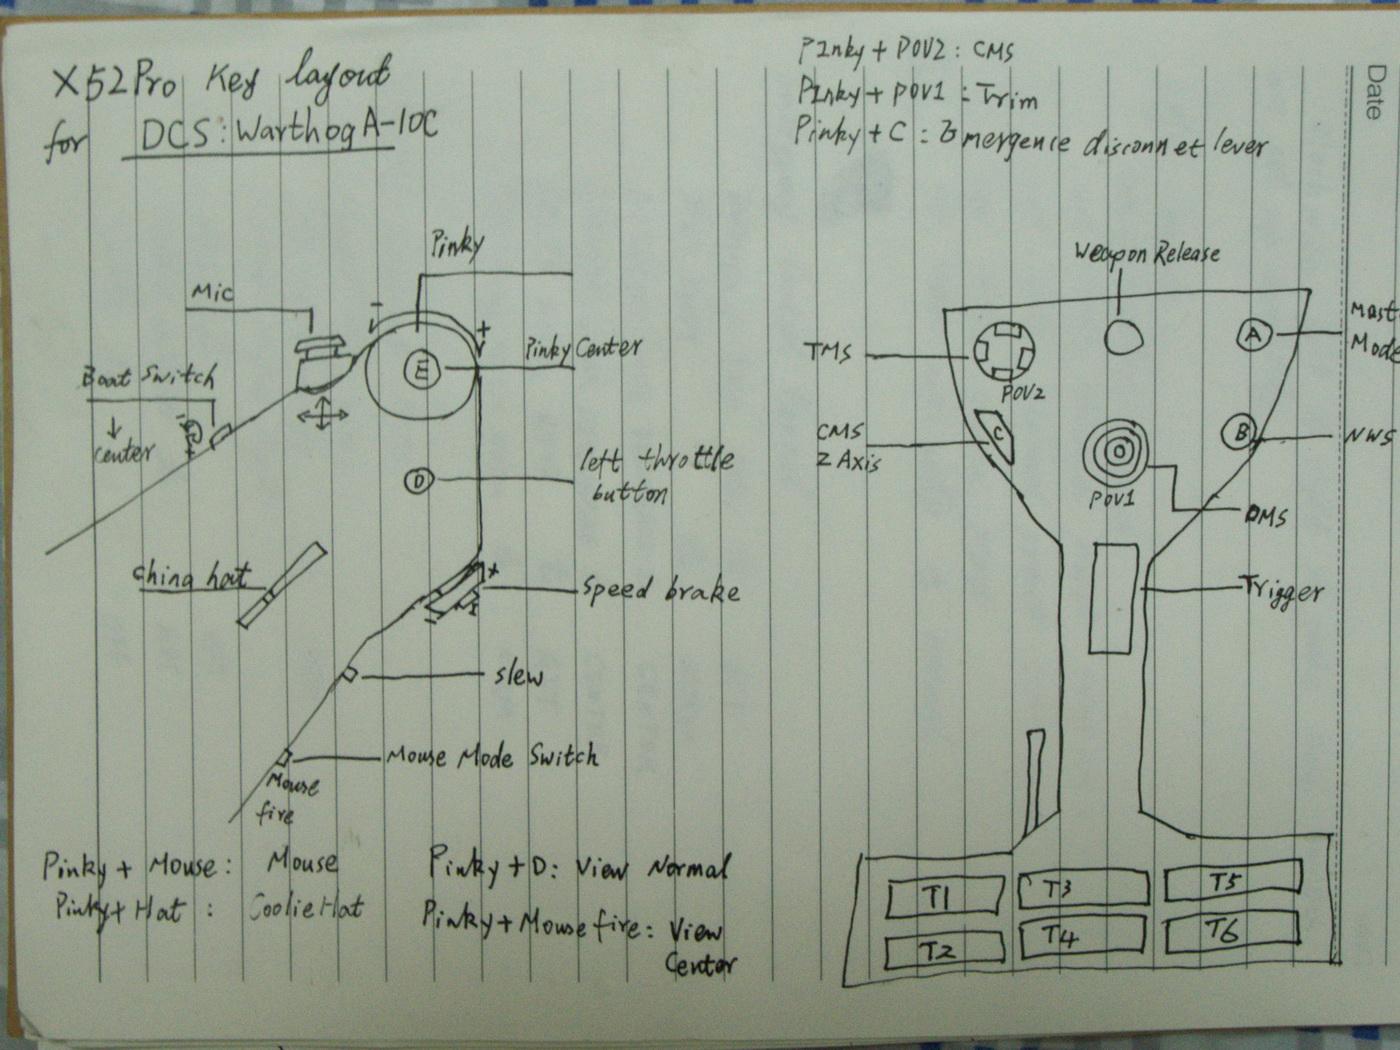 X52Pro Key layout
for DCS: Warthog A-10C
Pinky + POV2: CMS
Pinky + POV1: Trim
Pinky + C: Emergence disconnet lever
Date
Pinky
Mic
Pinky Center
Boat Switch
center
E
D
left throttle
button
china hat
speed brake
slew
Mouse Mode Switch
Mouse
fire
Pinky + Mouse: Mouse
Pinky + Hat: Coolie Hat
Pinky + D: View Normal
Pinky + Mouse fire: View
Center
Weapon Release
TMS
POV2
A
Mast
Mode
CMS
Z Axis
C
B
NWS
POV1
DMS
Trigger
T1
T3
T5
T2
T4
T6